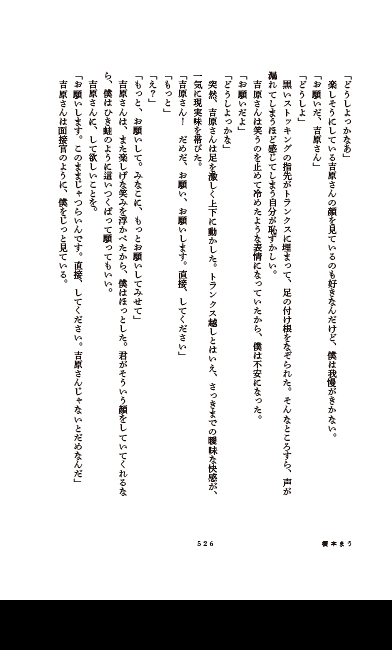 「どうしょっかなあ」
楽しそうにしている吉原さんの顔を見ているのも好きなんだけど、僕は我慢がきかない。
「お願いだ、吉原さん」
「どうしょ」
黒いストッキングの指先がトランクスに埋まって、足の付け根をなぞられた。そんなところすら、声が
漏れてしまうほど感じてしまう自分が恥ずかしい。
吉原さんは笑うのを止めて冷めたような表情になっていたから、僕は不安になった。
「お願いだよ」
「どうしょっかな」
突然、吉原さんは足を激しく上下に動かした。トランクス越しとはいえ、さっきまでの曖昧な快感が、
一気に現実味を帯びた。
「吉原さん！　だめだ、お願い、お願いします。直接、してください」
「もっと」
「え？」
「もっと、お願いして。みなこに、もっとお願いしてみせて」
吉原さんは、また楽しげな笑みを浮かべたから、僕はほっとした。君がそういう顔をしていてくれるな
ら、僕はひき蛙のように這いつくばって願ってもいい。
吉原さんに、して欲しいことを。
「お願いします。このままじゃつらいんです。直接、してください。吉原さんじゃないとだめなんだ」
吉原さんは面接官のように、僕をじっと見ている。
526
本まう